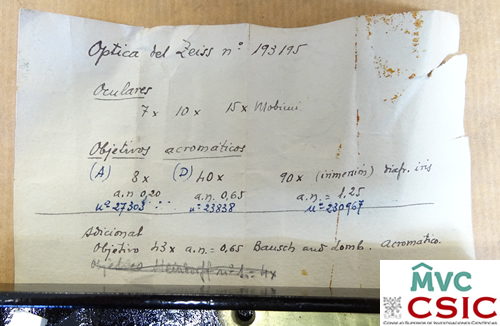 Optica del Zeiss nº 193195
Oculares
7x 10x 15x
Objetivos acromáticos
(A) 8x (D) 40x 90x (inmersión) diafr. iris
a.n. 0,20 a.n. 0,65 a.n. = 1,25
nº 27303 nº 23838 nº 230967
Adicional
Objetivo 43x a.n. = 0,65 Bausch and Lomb. Acromático.
MVC
CSIC
CONSEJO SUPERIOR DE INVESTIGACIONES CIENTÍFICAS